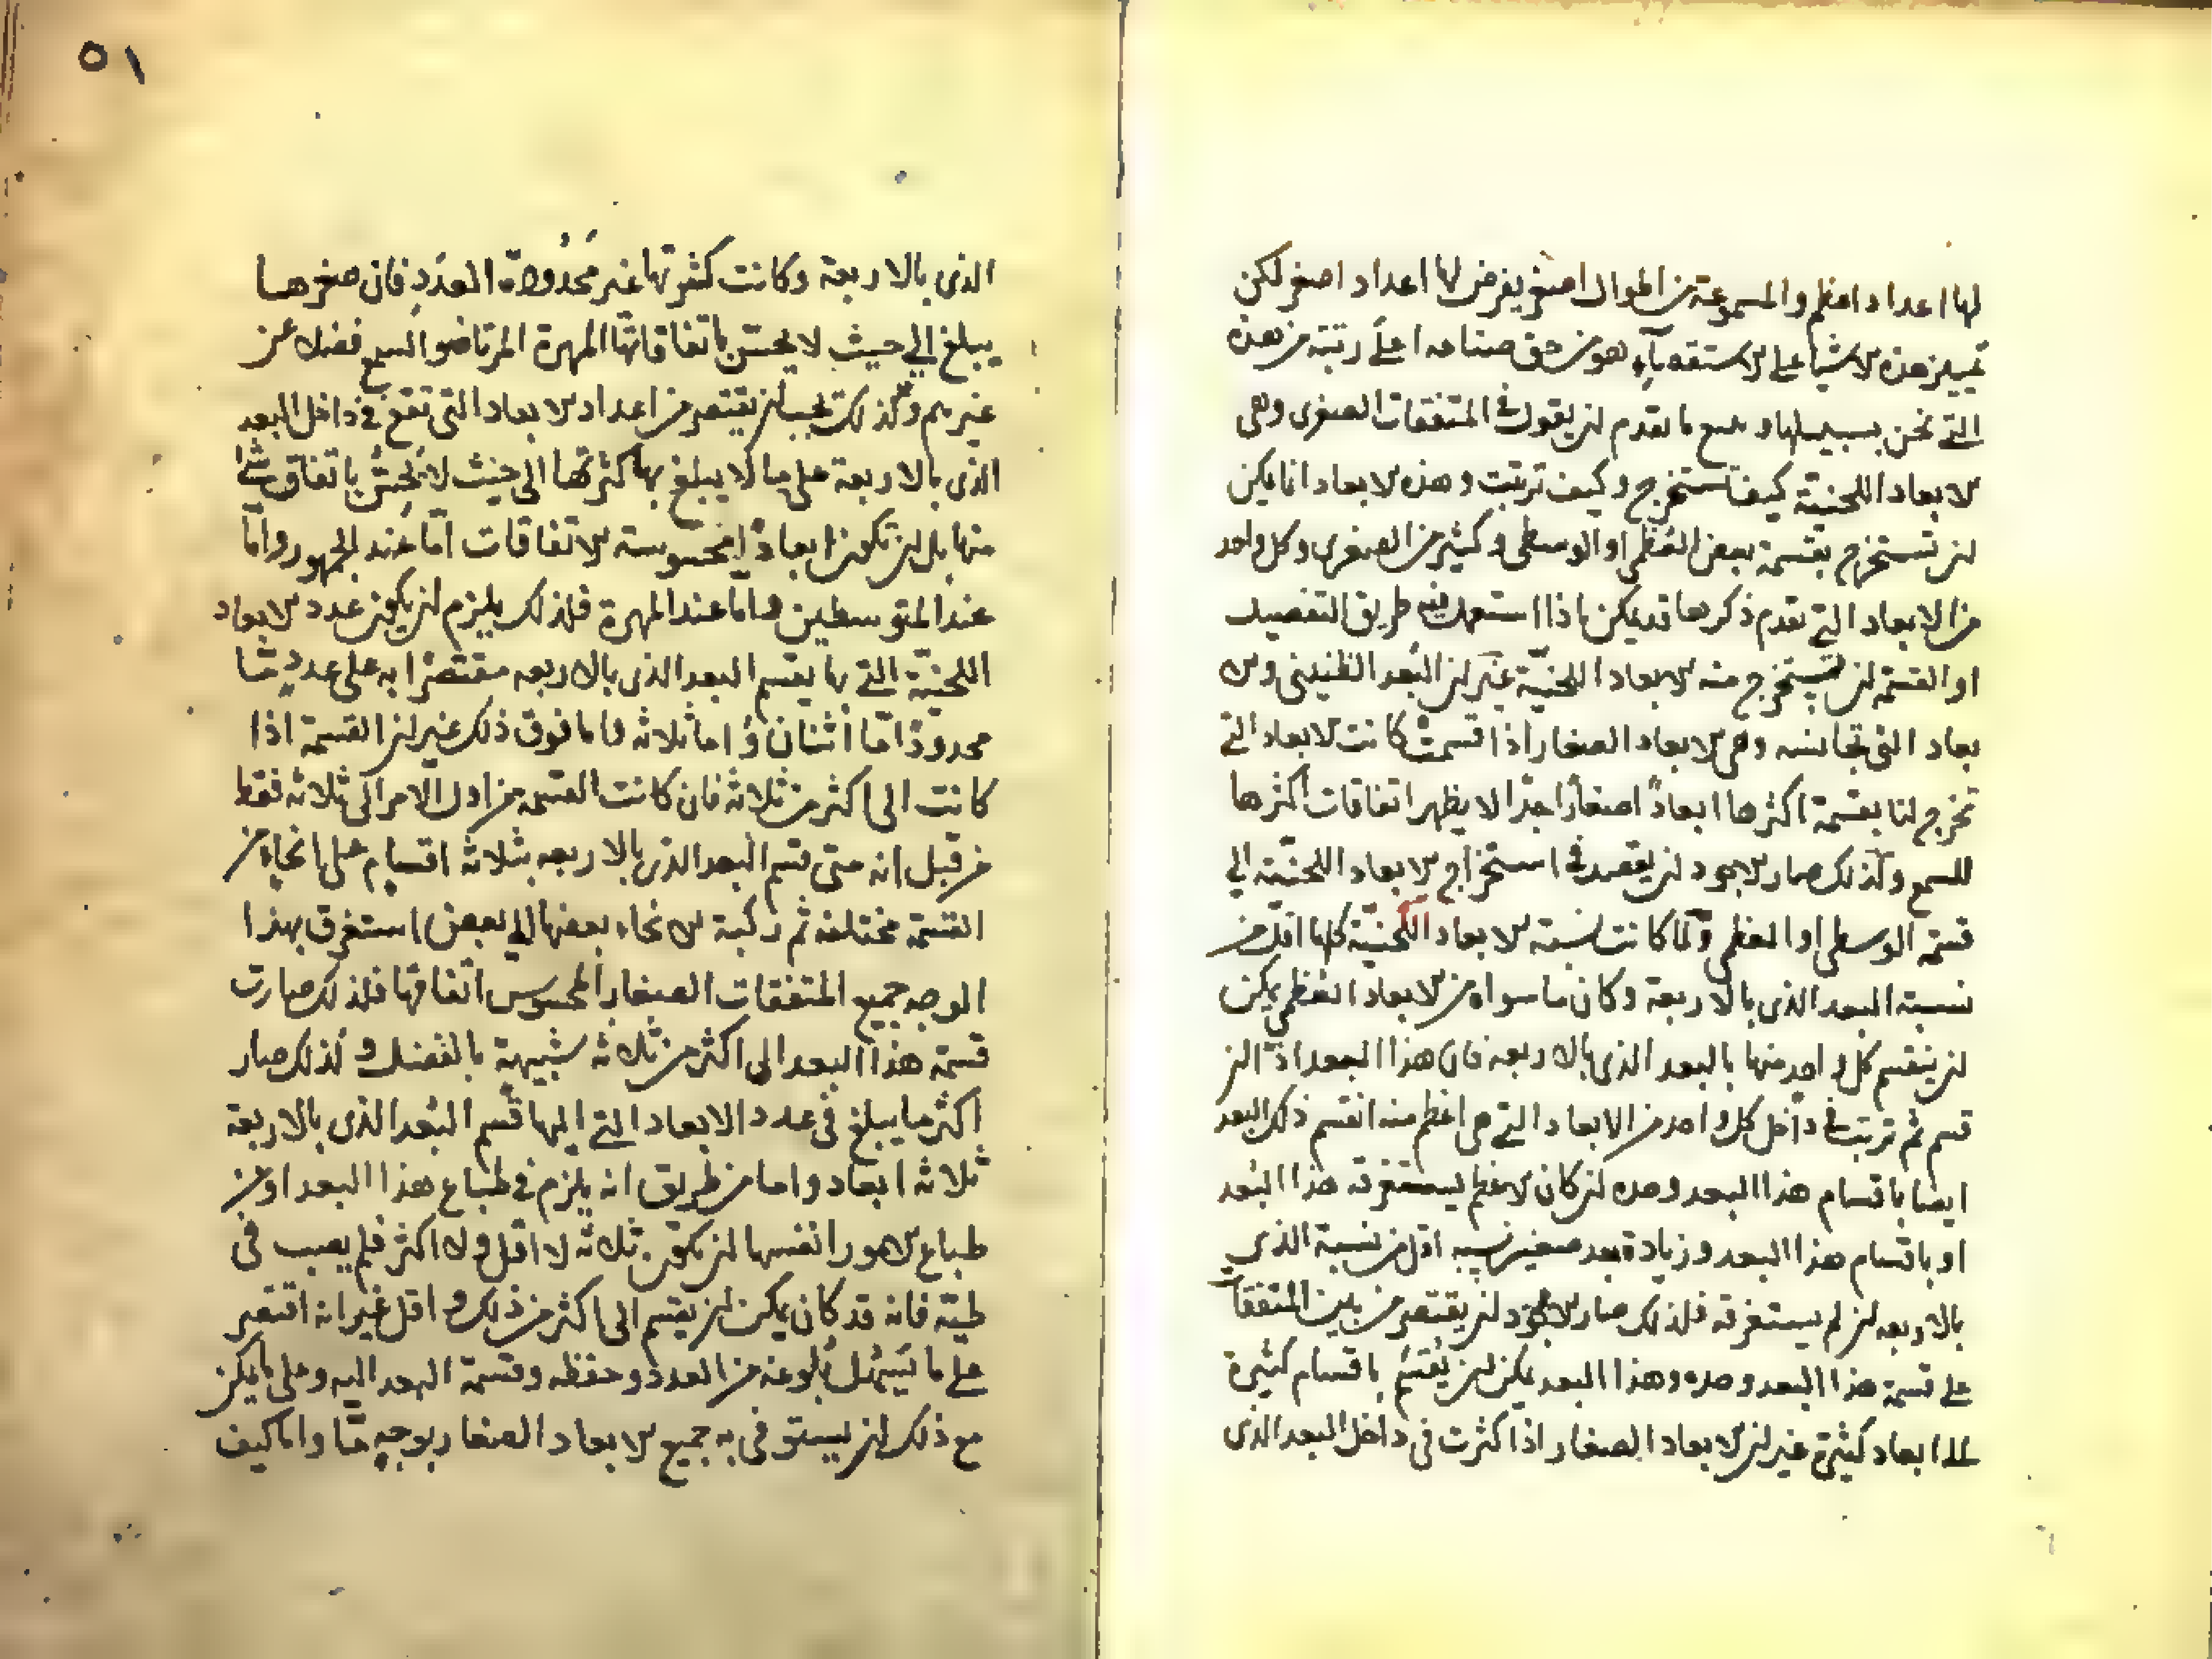 لها اعداد اعظم والمسموعة من اطوال اصغر يفرض لها اعداد اصغر لكن
تمييز هذه الاشيا على الاستقصآء هو من حق صناعه اعلى رتبة من هذه
التي نحن بسبيلها و ما تقدم ان يقول في المتفقات الصغرى وهي
الابعاد اللحنية كيف تستخرج وكيف ترتيب وهذه الابعاد انما يمكن
ان تستخرج بقسمة بعض العظمى او الوسطى وكثير من الصغرى وكل واحد
من الابعاد التي تقدم ذكرها قد يمكن اذا استعمل فيه طريق التفصيل
او القسمة ان يستخرج منه الابعاد اللحنية غير ان البعد الطنيني والا
بعاد التي تجانسه وهي الابعاد الصغار اذا قسمت كانت الابعاد التي
تخرج لنا بقسمة اكثرها ابعادً اصغارًا جدًا لا يظهر اتفاقات اكثرها
للسمع ولذلك صار الاجود ان يقصد في استخراج الابعاد اللحنية الي
قسمة الوسطى او العظمى ولما كانت نسبة الابعاد اللحنية كلها اقل من
نسبة البعد الذي بالاربعة وكان ما سواه من الابعاد العظمى يمكن
ان ينقسم كل واحد منها بالبعد الذي بالاربعه فان هذا البعد اذا
قسم ثم ترتيب في داخل كل واحد من الابعاد التي هي اعظم منه انقسم ذلك البعد
ايضا باقسام هذا البعد وحده ان كان الاعظم يستغرقه هذا البعد
او باقسام هذا البعد وزيادة بعد صغير نسبه اقل من نسبة الذي
بالاربعه ان لم يستغرقه فلذلك صار الاجود ان يقتصر من بين المتفقات
على قسمة هذا البعد وحده وهذا البعد يمكن ان يُقسم باقسام كثيرة
ابعاد كثيرة غير ان الابعاد الصغار اذا كثرت في داخل البعد الذي
٥١
الذي بالاربعة وكانت كثرتها غير محدودة العدد فان صغرها
يبلغ الي حيث لا يحس باتفاقاتها المهرة المرتاضوا السمع فضلا عن
غيرهم وكذلك يجب ان يقتصر من اعداد الابعاد التي تقع في داخل البعد
الذي بالاربعة على ما لا يبلغ بها كثرتها الى حيث لا يحس باتفاق شئ
منها بل ان تكون ابعادًا محسوسة الاتفاقات امّا عند الجمهور وامّا
عند المتوسطين واما عند المهرة فلذلك يلزم ان يكون عدد الابعاد
اللحنية التي بها يقسم البعد الذي بالاربعه مقتصرًا به على عددٍ مّا
محدودٍ امّا اثنان وُ اما ثلاثه واما فوق ذلك غير ان القسمة اذا
كانت الى اكثر من ثلاثه فان كانت القسمه من اول الامر الى ثلاثه فقط
من قبل انه متى قسم البعد الذي بالاربعه بثلاثة اقسام على انحاء من
القسمة مختلفه ثم ركبة الانحاء بعضها الي بعض استغرق بهذا
الوجه جميع المتفقات الصغار المحسوس اتفاقها فلذلك صارت
قسمة هذا البعد الى اكثر من ثلاثه شبيهة بالفضل ولذلك صار
اكثر ما يبلغ في عدد الابعاد التي اليها قُسم البُعد الذي بالاربعة
ثلاثه ابعاد واما من طريق انه يلزم في طباع هذا البعد او من
طباع الامور انفسها ان يكون ثلاثه لا اقل ولا اكثر فلم يصب في
طيّه فانه قد كان يمكن ان يقسم الى اكثر من ذلك و اقل غير انه اقتصر
على ما يَسْهُل بُلوغه من العدد وحفظه وقسمة البعد اليه وعلى ما يمكن
مع ذلك ان يستوفى به جميع الابعاد الصغار بوجهٍ مّا واما كيف